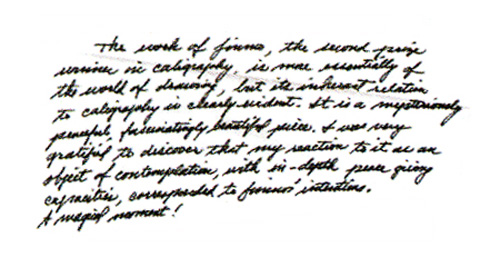 The work of finnus, the second prize
winner in caligraphy, is more essentially of
the world of drawing, but its inherent relation
to caligraphy is clearly evident. It is a mysteriously
peaceful, fascinatingly beautiful piece. I was very
grateful to discover that my reaction to it as an
object of contemplation, with in-depth peace giving
capacities, corresponded to finnus' intentions.
A magical moment!